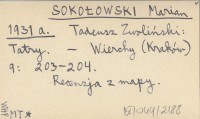 SOKOŁOWSKI Marian
1931 a. Tadeusz Zwoliński:
Tatry. – Wierchy (Kraków)
9: 203-204.
Recenzja z mapy.
MT*